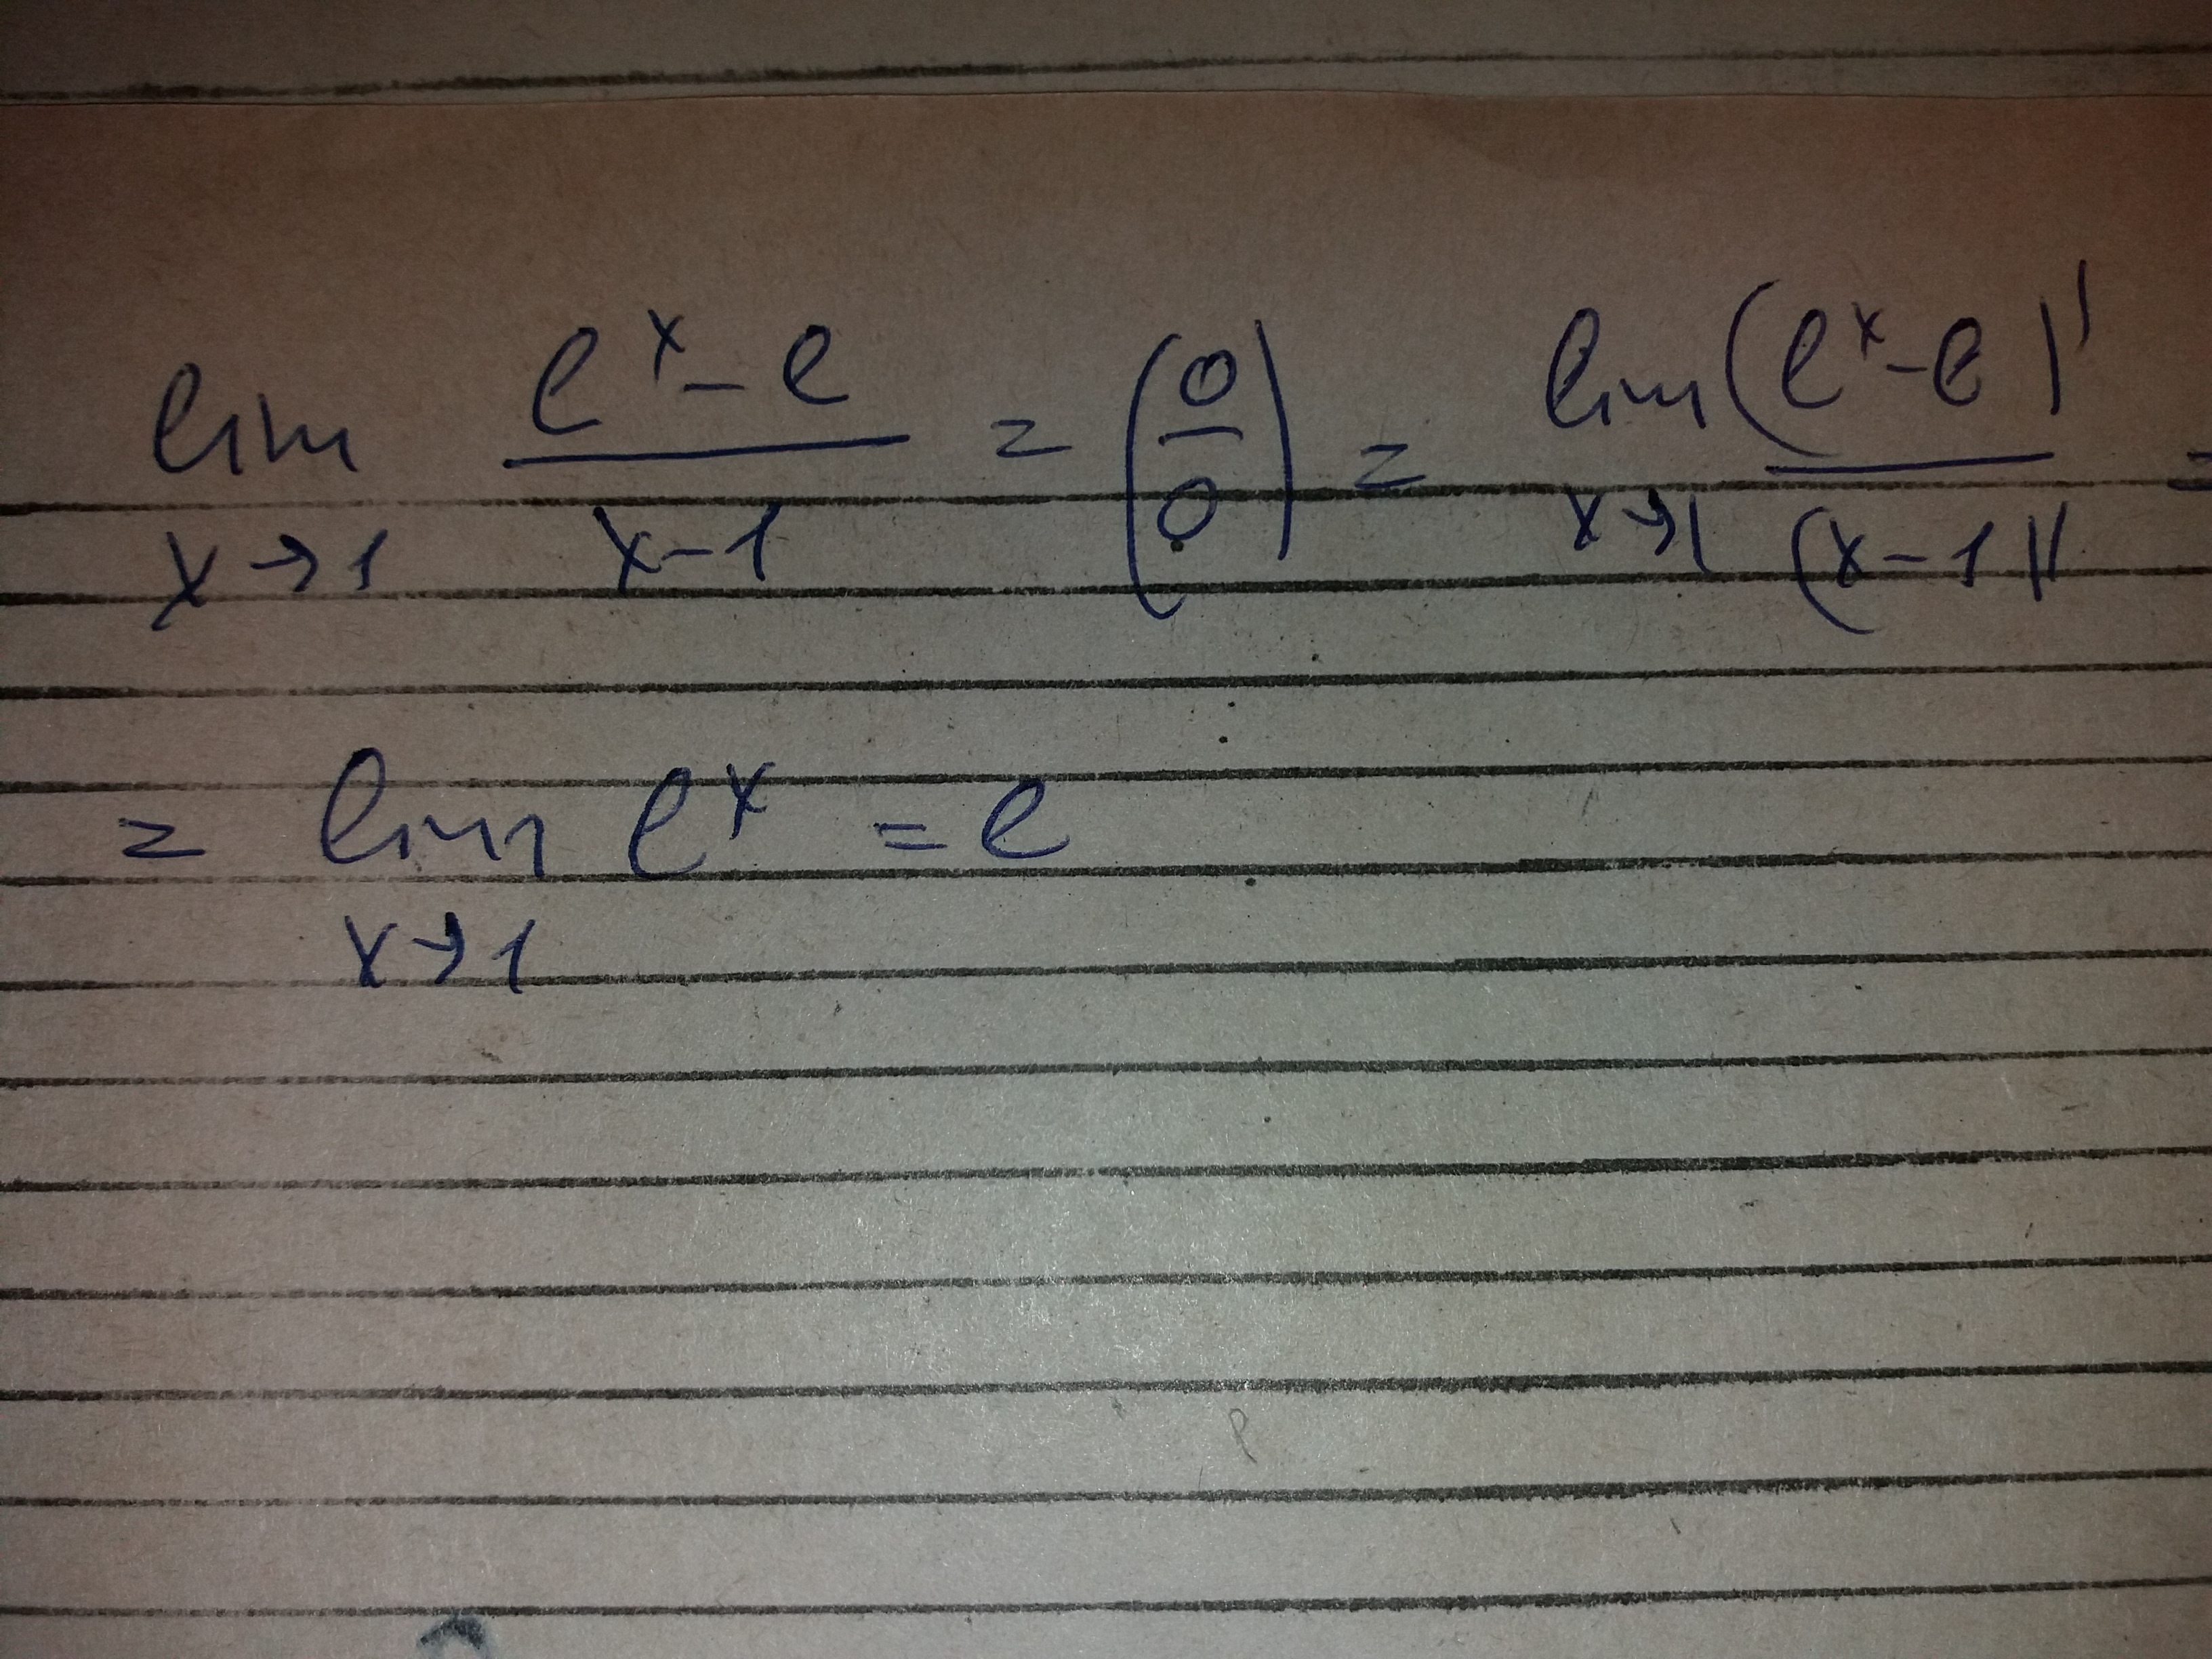 lim_{x→1} \frac{e^x - e}{x - 1} = (\frac{0}{0}) = lim_{x→1} \frac{(e^x - e)'}{(x - 1)'} =
= lim_{x→1} e^x = e